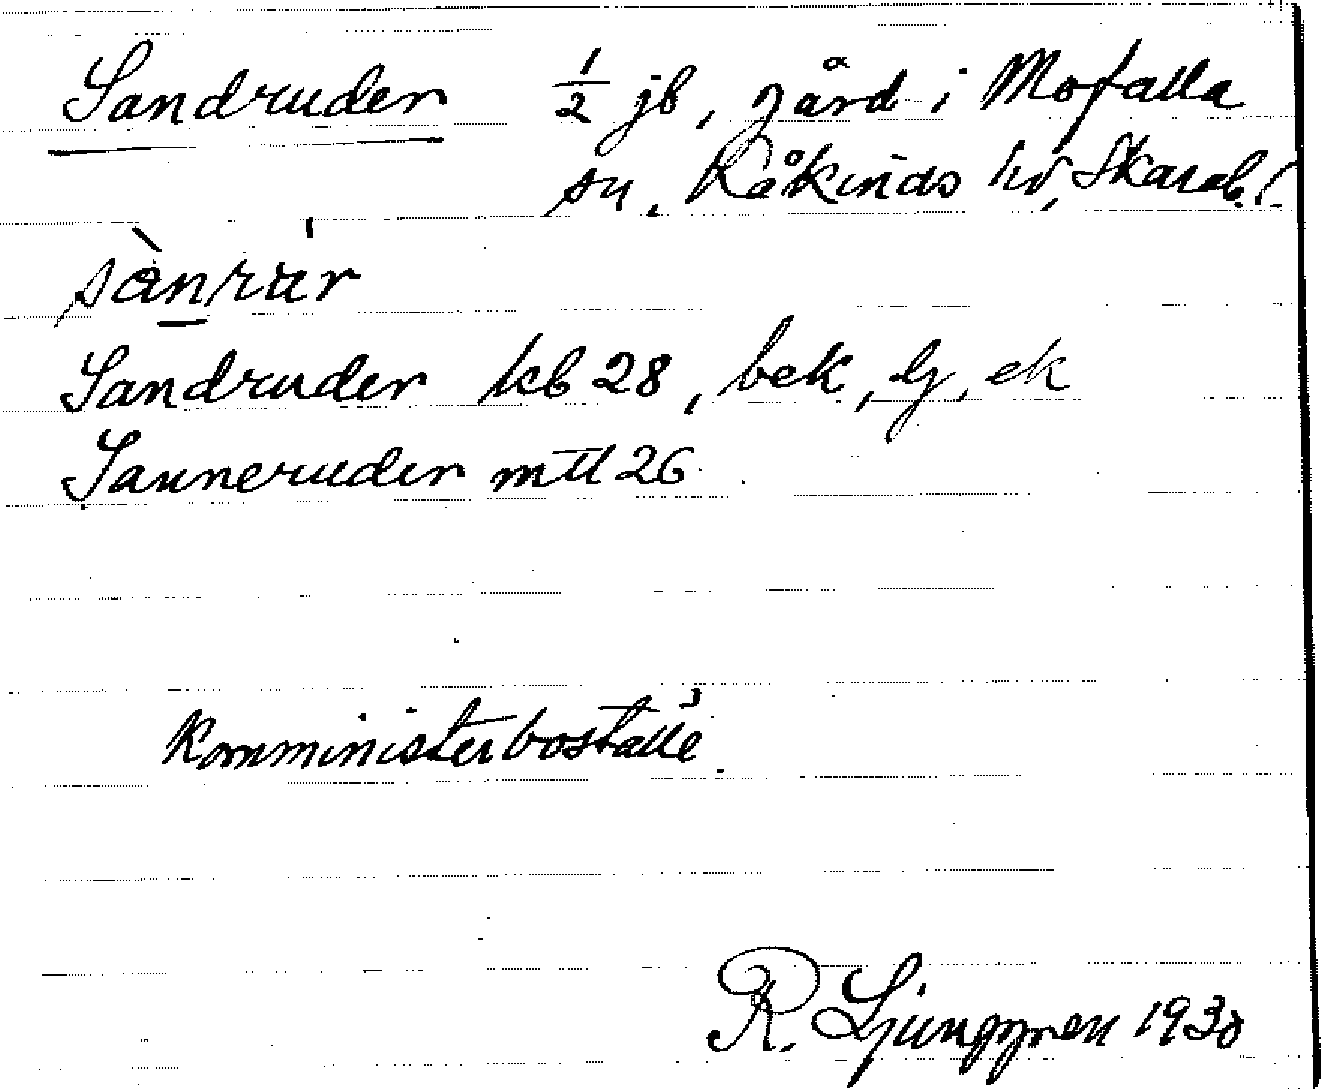 Sandruder ½ jb, gård i Mofalla
sn, Kåkinds hd, Skarab. l.
sànrúr
Sandruder kb 28, bek, lg, ek
Sanneruder mtl 26
Komministerboställe
R. Ljunggren 1930